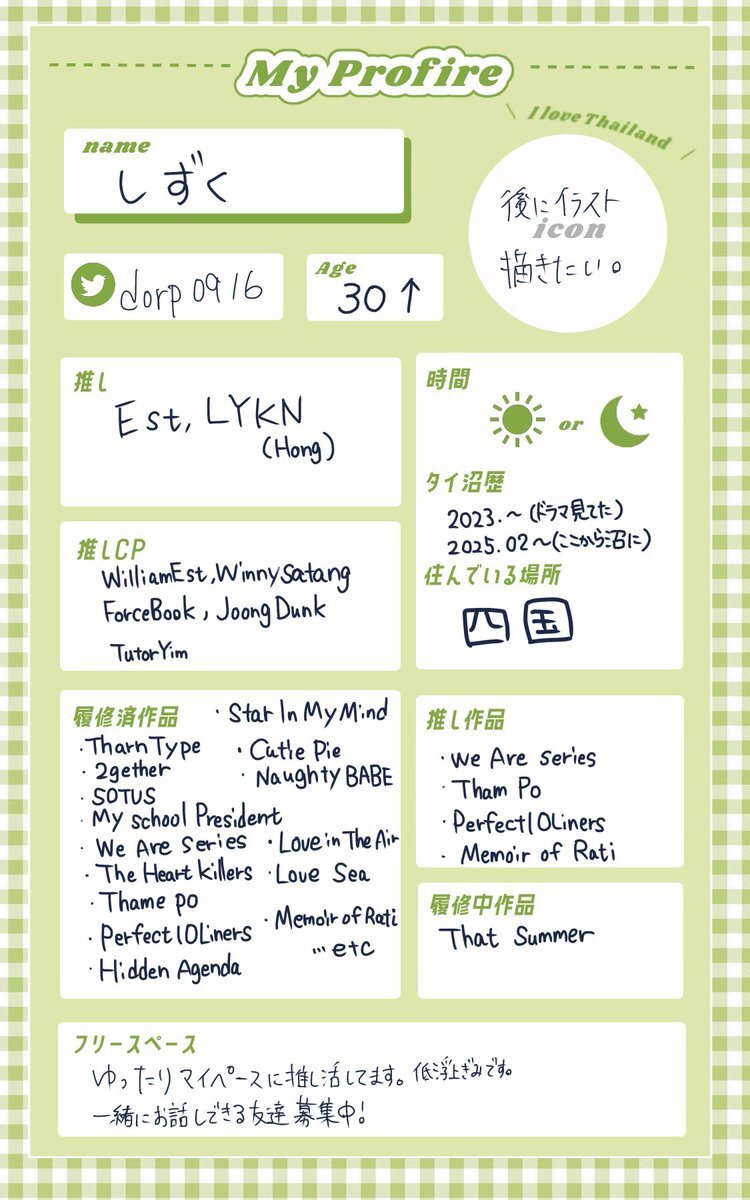 My Profire
I love Thailand
name
しずく
後にイラスト
icon
描きたい。
dorp0916
Age
30↑
推し
Est, LYKN
(Hong)
時間
or
タイ沼歴
2023.～(ドラマ見てた)
2025.02～(ここから沼に)
住んでいる場所
四国
推しCP
WilliamEst, WinnySatang
ForceBook, JoongDunk
TutorYim
履修済作品
・Star In My Mind
・TharnType
・Cutie Pie
・2gether
・Naughty BABE
・SOTUS
・My school President
・We Are series
・Love in The Air
・The Heart killers
・Love Sea
・Thame po
・Memoir of Rati
・Perfect10Liners
…etc
・Hidden Agenda
推し作品
・We Are series
・Tham Po
・Perfect10Liners
・Memoir of Rati
履修中作品
That Summer
フリースペース
ゆったりマイペースに推し活してます。低浮上ぎみです。
一緒にお話しできる友達募集中!